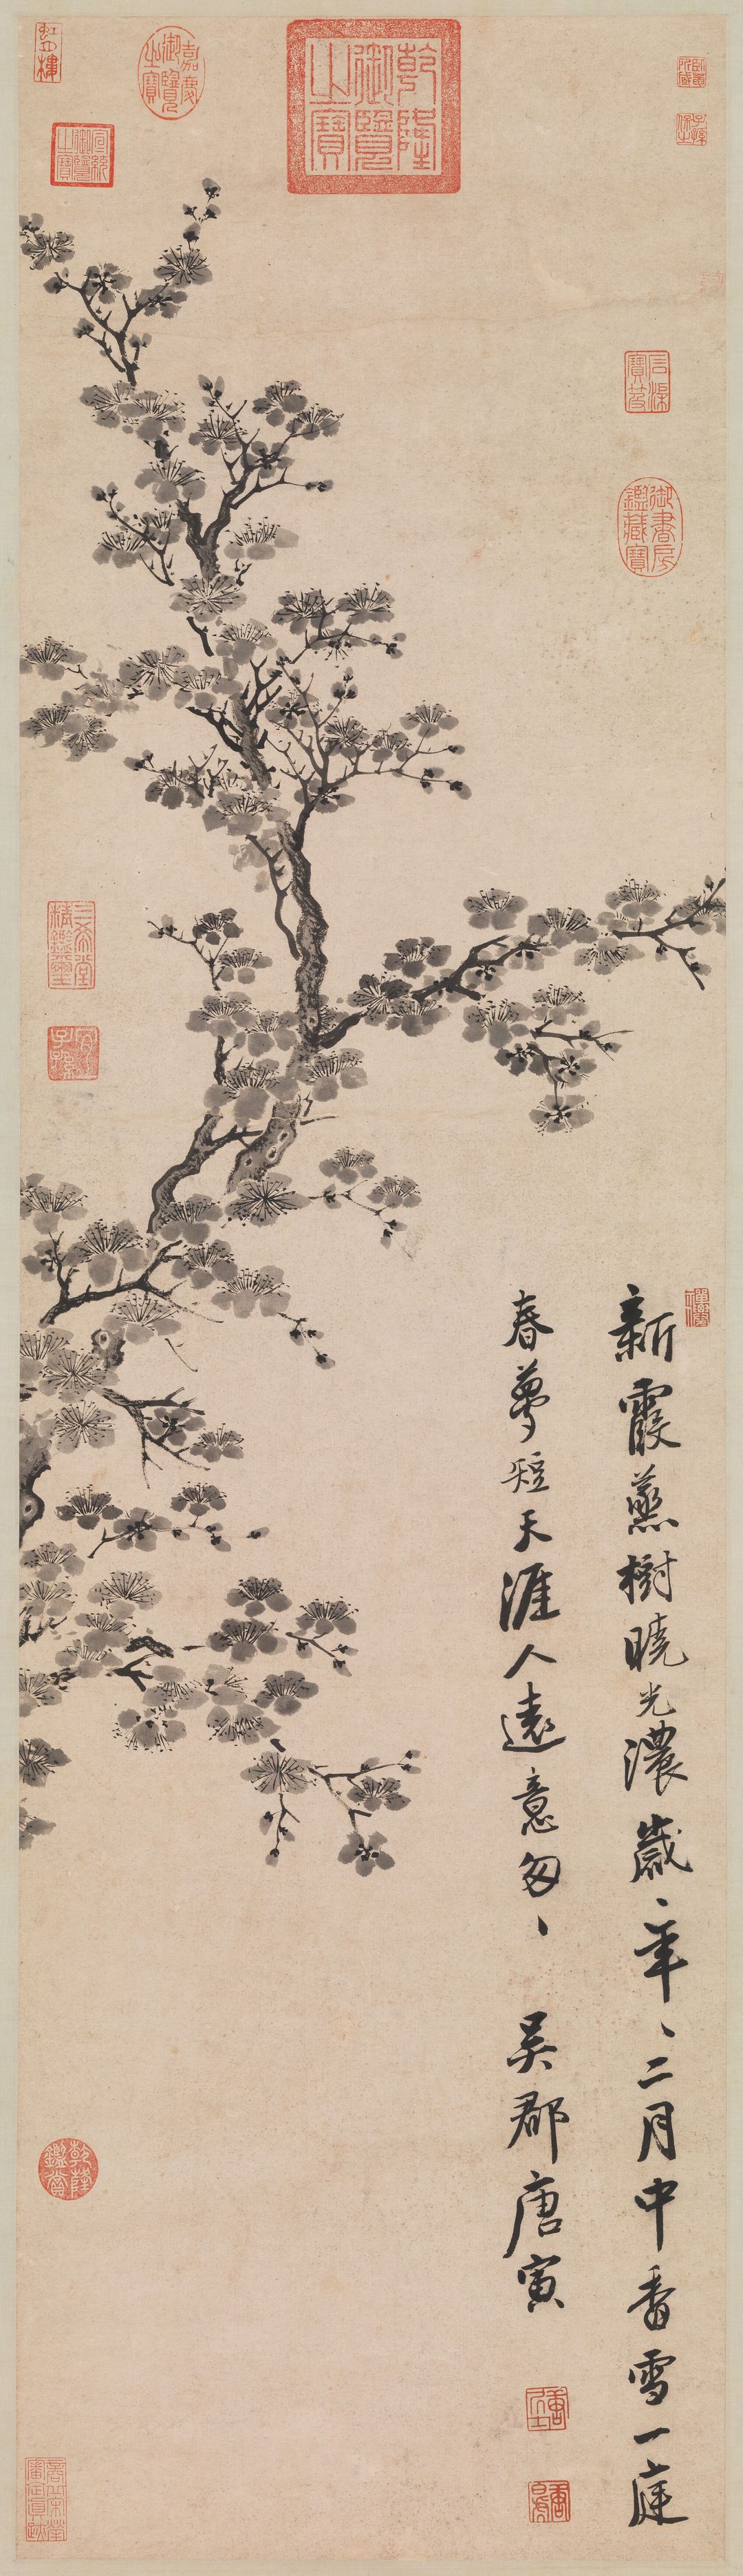 新霞蒸樹曉光濃歲、年、二月中香雪一庭
春夢短天涯人遠意匆、 吳郡唐寅
乾隆御覽之寶
嘉慶御覽之寶
宣統御覽之寶
石渠寶笈
御書房鑑藏寶
三希堂精鑑璽
宜子孫
乾隆鑑賞
唐居士